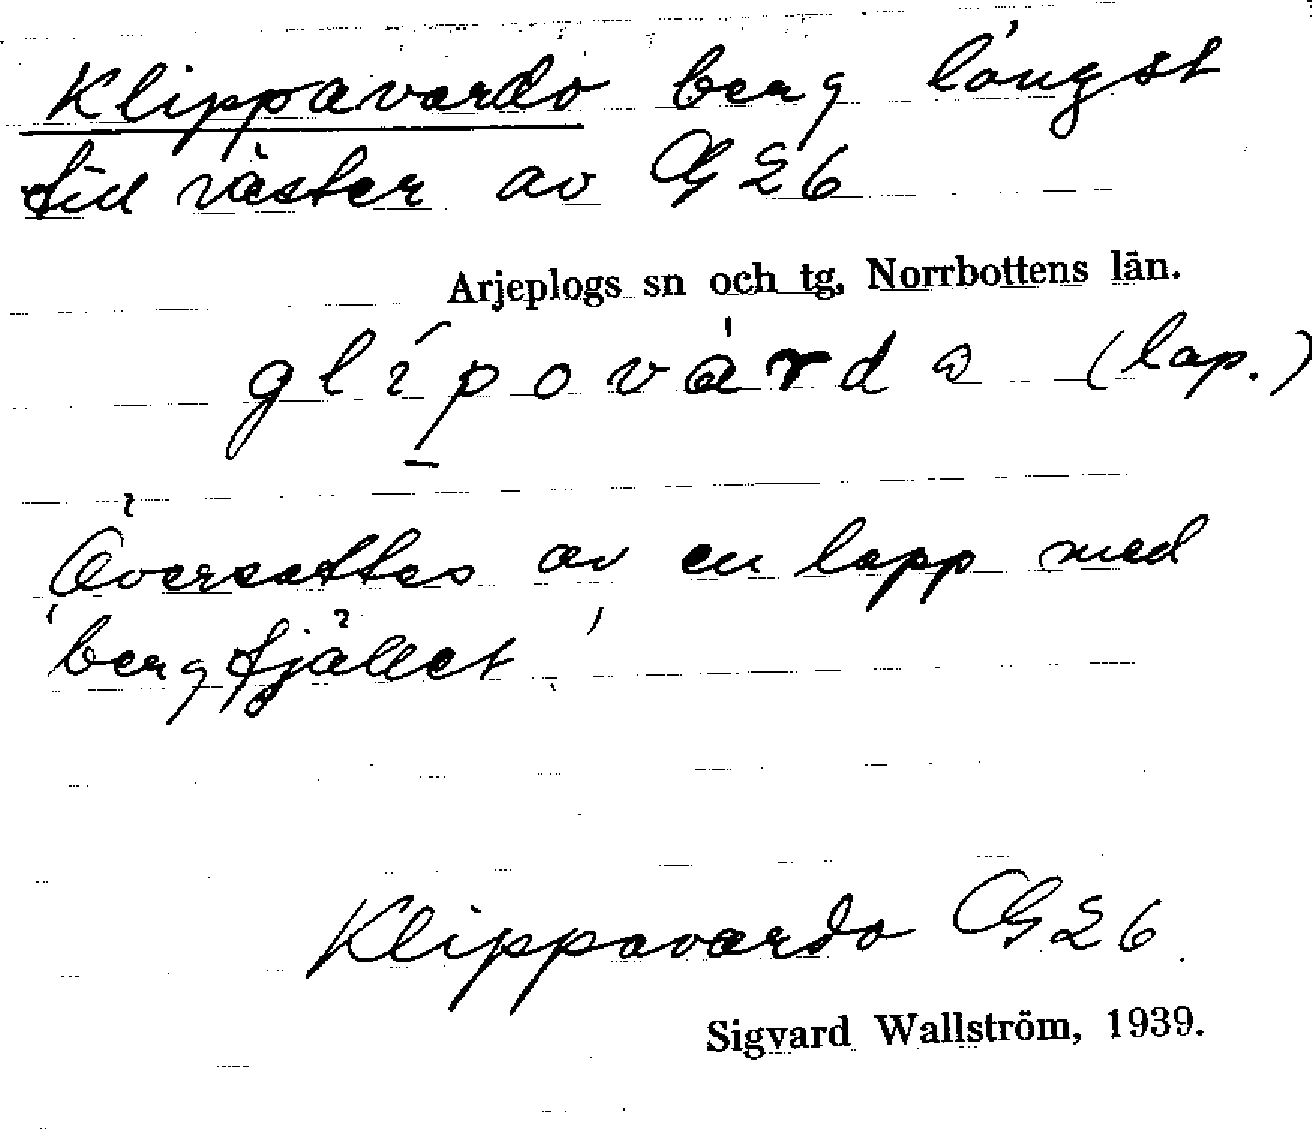 Klippavardo berg längst
till väster av G 26
Arjeplogs sn och tg, Norrbottens län.
(lap.)
Översattes av en lapp med
'bergfjället'
Klippavardo G 26.
Sigvard Wallström, 1939.